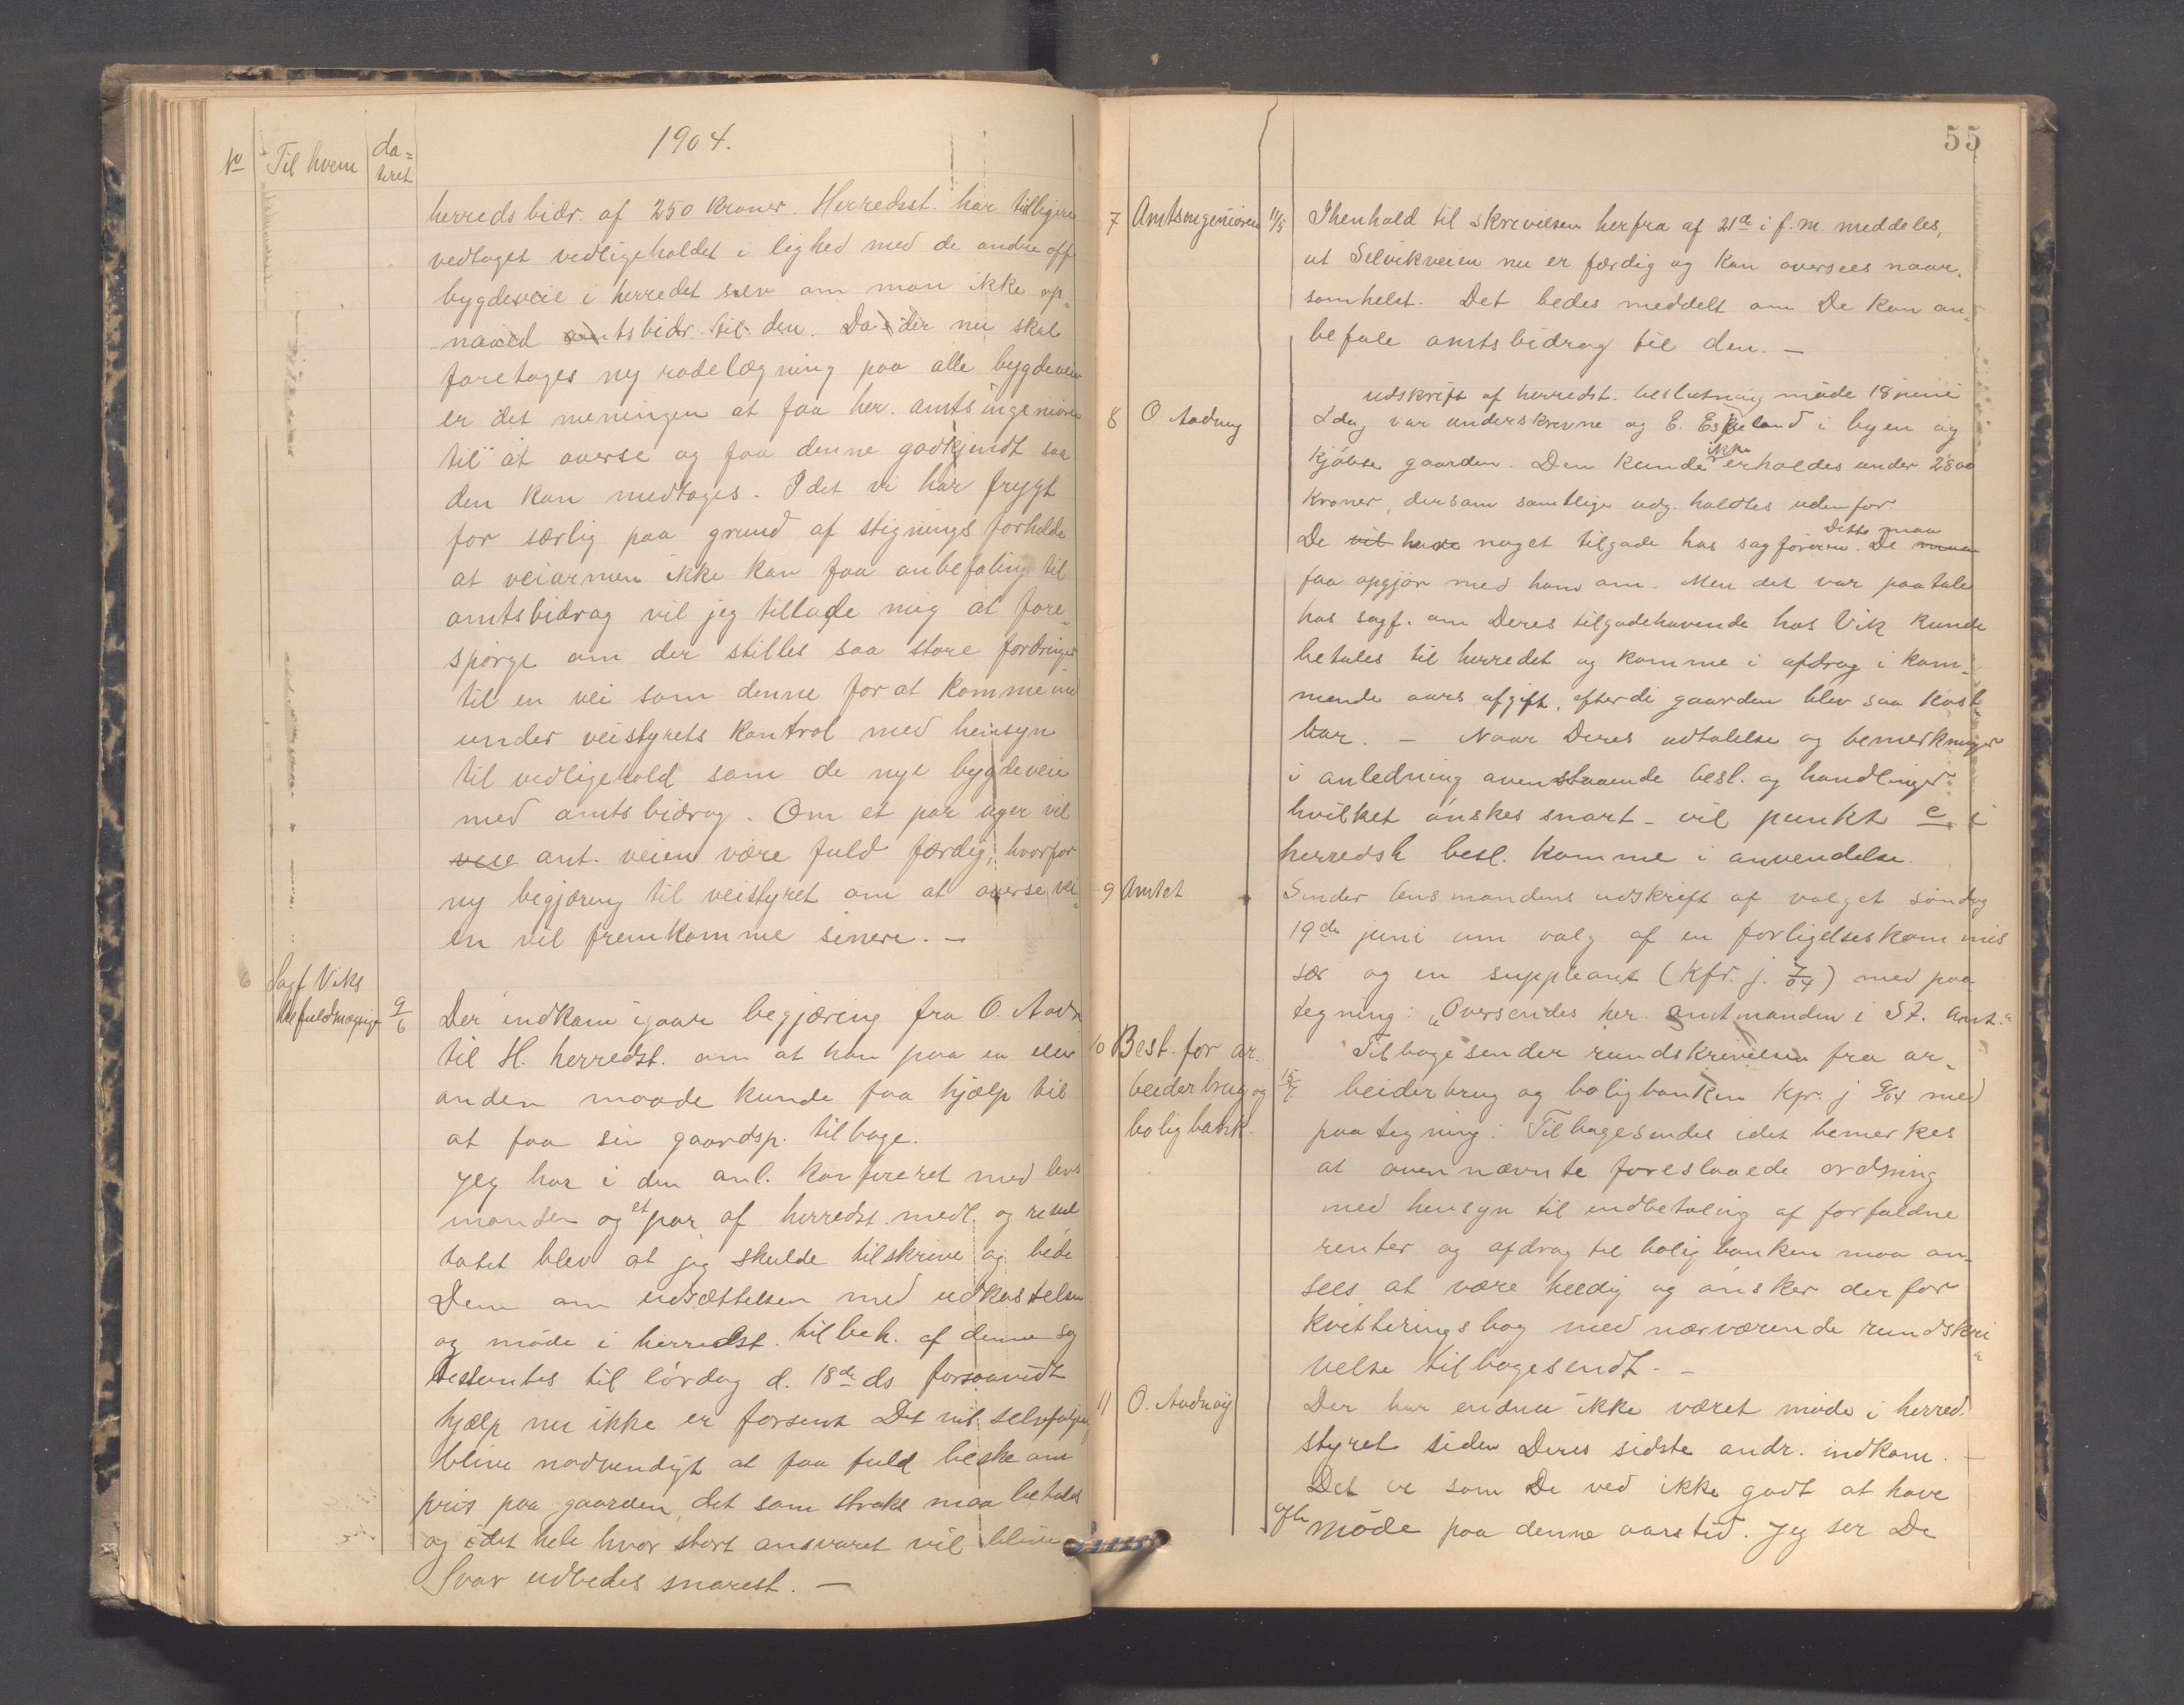 1904.
No Til hvem da=
teret
herreds bidr. af 250 kroner. Herredsst. har tilligere
vedtaget vedligeholdet i lighed med de andre off.
bygdeveie i herredet selv om man ikke op-
naaed amtsbidr. til den. Da der nu skal
foretages ny rodelægning paa alle bygdeveie
er det meningen at faa her. amtsingeniøren
til at overse og faa denne godkjendt saa
den kan medtages. Idet vi har frygt
for særlig paa grund af stignings forholde
at veiarmen ikke kan faa anbefaling til
amtsbidrag vil jeg tillade mig at fore-
spørge om der stilles saa store fordringer
til en vei som denne for at komme ind
under veistyrets kontrol med hensyn
til vedligehold som de nye bygdeveie
med amtsbidrag. Om et par uger vil
veie ant. veien være fuld færdig, hvorfor
ny begjæring til veistyret om at overse vei-
en vil fremkomme senere. —
6 Sagf Viks
fuldmægtige 9/6 Der indkom igaar begjæring fra O. Aadn.
til H. herredst. om at han paa en eller
anden maade kunde faa hjælp til
at faa sin gaardsp. tilbage.
Jeg har i den anl. konfereret med lens
manden og et par af herredst. medl. og resul
tatet blev at jeg skulde tilskrive og bede
Dem om udsættelsen med udkastelsen
og møde i herredst. til beh. af denne sag
bestemtes til lørdag d. 18de ds forsaavidt
hjælp nu ikke er forsent. Det vil selvfølgelig
blive nødvendigt at faa fuld beske om
pris paa gaarden, det som straks maa betales
og i det hele hvor stort ansvaret vil blive
Svar udbedes snarest. —
55
7 Amtsingeniøren 11/5 I henhold til skrivelsen herfra af 21de i f.m. meddeles,
at Selvikveien nu er færdig og kan oversees naar-
somhelst. Det bedes meddelt om De kan an-
befale amtsbidrag til den. —
udskrift af herredst. beslutning møde 18 juni
8 O. Aadnøy Idag var underskrevne og E. Eskeland i byen og
kjøbte gaarden. Den kunde ikke erholdes under 2800
kroner, dersom samtlige udg. holdtes udenfor.
De vil have noget tilgode hos sagføreren. Dette maa De maa
faa opgjør med ham om. Men det var paatale
hos sagf. om Deres tilgodehavende hos Vik kunde
betales til herredet og komme i afdrag i kom-
mende aars afgift, efterdi gaarden blev saa kost-
bar. — Naar Deres udtalelse og bemerkninger
i anledning ovenstaaende besl. og handlinger
hvilket ønskes snart - vil punkt c i
herredst. besl. komme i anvendelse.
9 Amtet Sender lensmandens udskrift af valget søndag
19de juni om valg af en forligelseskommis
sær og en suppleant (kfr. j. 7/04) med paa
tegning: "Oversendes her. amtmanden i St. Amt."
10 Best. for ar- Tilbagesender rundskrivelsen fra ar-
beiderbrug og 15/7 beiderbrug og boligbanken kfr. j 9/04 med
boligbank. paategning: Tilbagesendes idet bemerkes
at ovennævnte foreslaaede ordning
med hensyn til indbetaling af forfaldne
renter og afdrag til boligbanken maa an-
sees at være heldig og ønsker derfor
kvitteringsbog med nærværende rundskri
velse tilbagesendt. —
11 O. Aadnøy Der har endnu ikke været møde i herred.
styret siden Deres sidste andr. indkom. —
Det er som De ved ikke godt at have
ofte møde paa denne aarstid. Jeg ser De